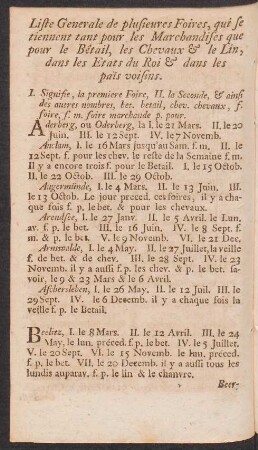 Liste Generale de plusieures Foires, qui se
tiennent tant pour les Marchandises que
pour le Bétail, les Chevaux & le Lin,
dans les Etats du Roi & dans les
païs voisins.
I. Signifie, la premiere Foire, II. la Seconde, & ainsi
des autres nombres, bet. betail, chev. chevaux, f.
foire, f. m. foire marchande p. pour.
Aderberg, ou Oderberg, la I. le 21 Mars. II. le 20
Juin. III. le 12 Sept. IV. le 7 Novemb.
Anclam, I. le 16 Mars jusqu'au Sam. f. m. II. le
12 Sept. f. pour les chev. le reste de la Semaine f. m.
Il y a encore trois f. pour le Betail. I. le 15 Octob.
II. le 22 Octob. III. le 29 Octob.
Angermünde, I. le 4 Mars. II. le 13 Juin. III.
le 13 Octob. Le jour preced. ces foires, il y a cha-
que fois f. p. le bet. & pour les chevaux.
Arendsée, I. le 27 Janv. II. le 5 Avril. le Lun.
av. f. p. le bet. III. le 16 Juin. IV. le 8 Sept. f.
m. & p. le bet. V. le 9 Novemb. VI. le 21 Dec.
Arnswalde, I. le 4 May. II. le 27 Juillet, la veille
f. de bet. & de chev. III. le 28 Sept. IV. le 23
Novemb. il y a aussi f. p. les chev. & p. le bet. sa-
voir, le 9 & 23 Mars & le 6 Avril.
Aschersleben, I. le 26 May. II. le 12 Juil. III. le
29 Sept. IV. le 6 Decemb. il y a chaque fois la
veille f. p. le Betail.
Beelitz, I. le 8 Mars. II. le 12 Avril. III. le 24
May, le lun. préced. f. p. le bet. IV. le 5 Juillet.
V. le 20 Sept. VI. le 15 Novemb. le lun. préced.
f. p. le bet. VII. le 20 Decemb. il y a aussi tous les
lundis auparav. f. p. le lin & le chanvre.
Beer-